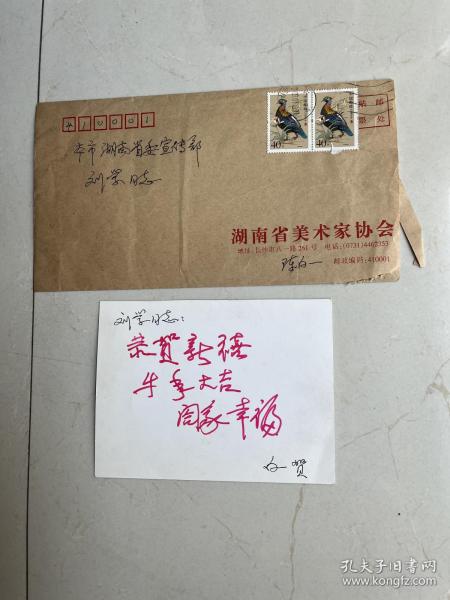 410001
40
40
贴邮
票处
本市湖南省委宣传部
刘学同志
湖南省美术家协会
地址:长沙市八一路261号 电话:(0731)4462353
邮政编码:410001
陈白一
刘学同志:
恭贺新禧
牛年大吉
阖家幸福
白一贺
孔夫子旧书网
www.kongfz.com